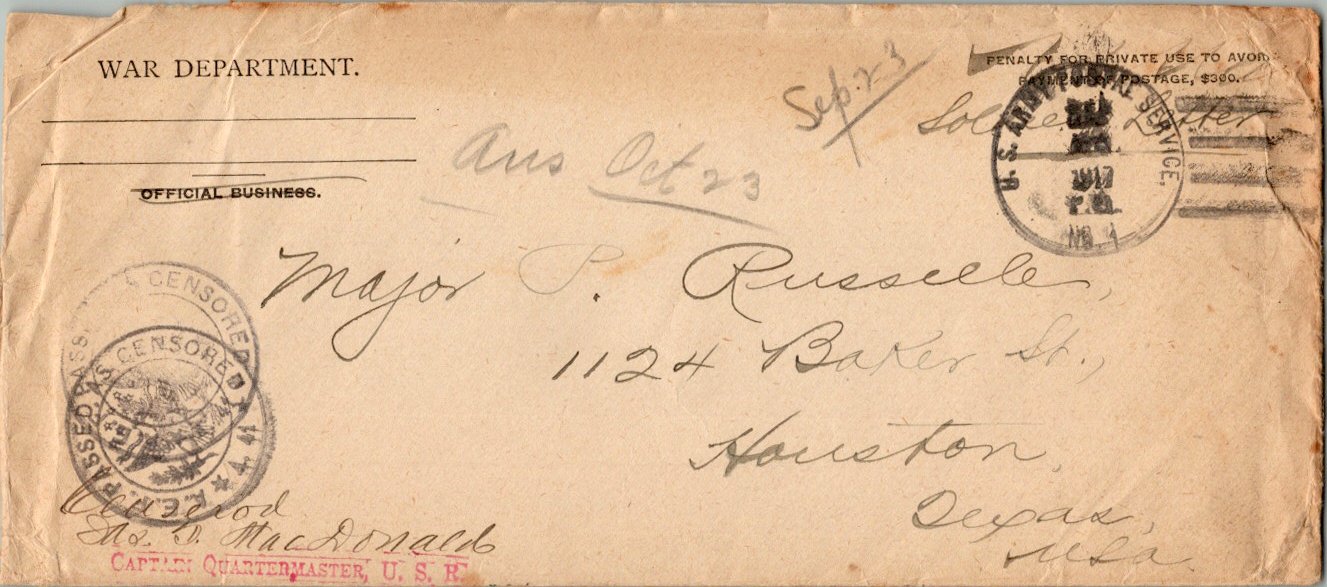 WAR DEPARTMENT.
OFFICIAL BUSINESS.
PENALTY FOR PRIVATE USE TO AVOID
PAYMENT OF POSTAGE, $300.
Sep. 23
Soldier's Letter
U. S. ARMY POSTAL SERVICE.
1917
NO. 1
Ans Oct 23
Major P. Russelle,
1124 Baker St.,
Houston,
Texas,
USA.
PASSED AS CENSORED
PASSED AS CENSORED
A.E.F.
Censored
Jas. D. MacDonald
CAPTAIN QUARTERMASTER, U. S. R.